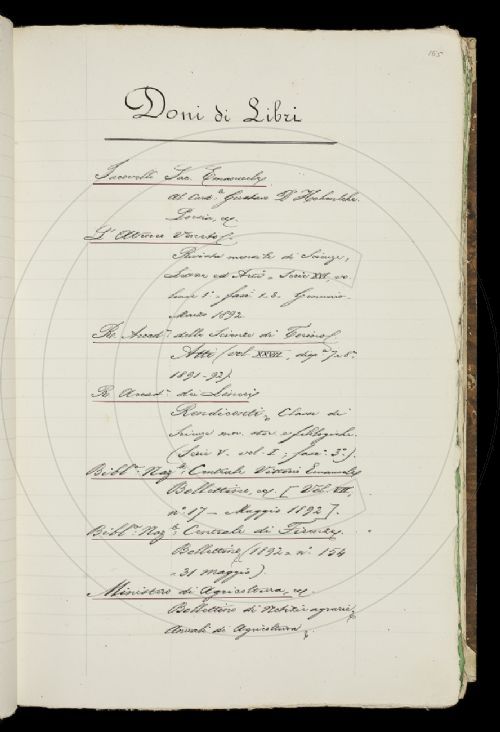 165
Doni di Libri
Iacovelli Sac. Emanuele
Al Card. Gustavo D'Hohenlohe.
Poesia, ec.
L'Ateneo Veneto
Rivista mensile di Scienze,
Lettere ed Arti. Serie XVI, vo-
lume 1° fasc. 1.3. Gennaio-
Marzo 1892
R. Accad. delle Scienze di Torino
Atti (vol. XXVII, disp. 7.8.
1891-92).
R. Accad. dei Lincei
Rendiconti. Classe di
Scienze mor. stor. e filologiche.
(Serie V. vol. I; fasc. 3°).
Bibl. Naz. Centrale Vittorio Emanuele
Bollettino, ec. [Vol. VII,
n° 17 - Maggio 1892].
Bibl. Naz. Centrale di Firenze
Bollettino (1892 - n° 154
- 31 maggio).
Ministero di Agricoltura, ec.
Bollettino di Notizie agrarie
Annali di Agricoltura